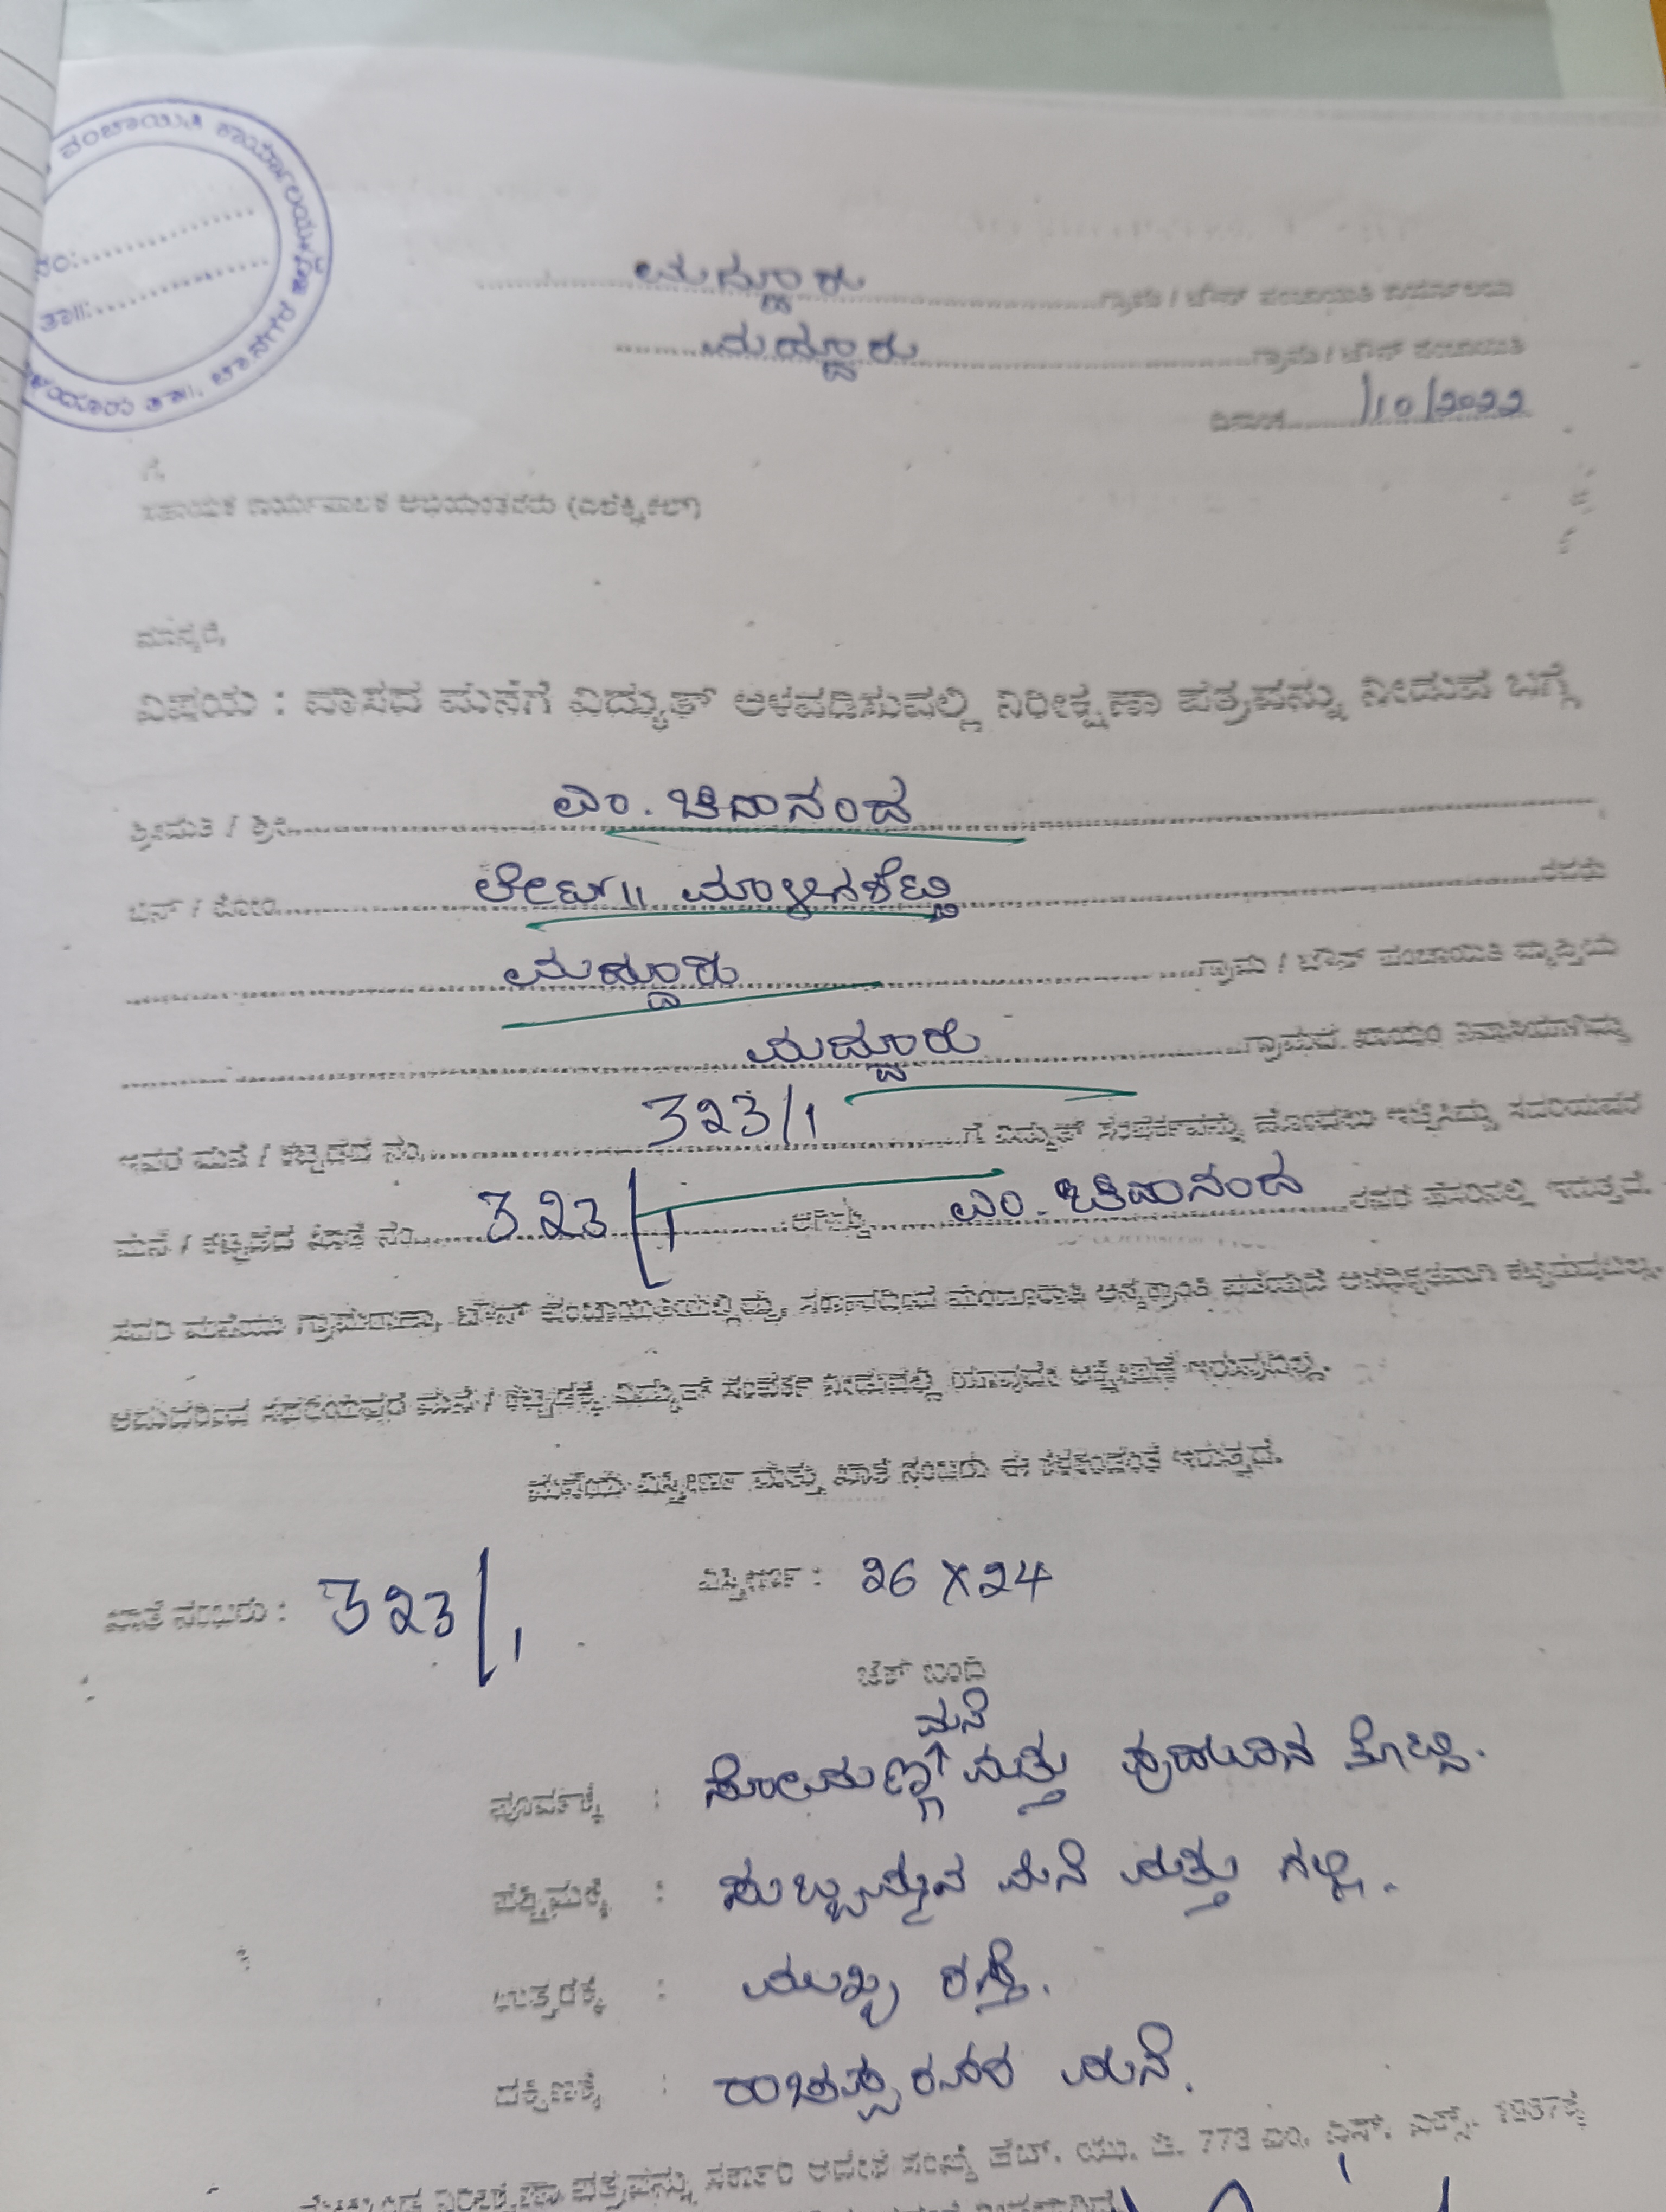 ಪಂಚಾಯಿತಿ ಕಾರ್ಯಾಲಯ
ನಂ:
ತಾ॥:
ಮದ್ದೂರು ಗ್ರಾಮ / ಟೌನ್ ಪಂಚಾಯಿತಿ ಕಾರ್ಯಾಲಯ
ಮದ್ದೂರು ಗ್ರಾಮ / ಟೌನ್ ಪಂಚಾಯಿತಿ
ದಿನಾಂಕ /10/2022
ಗೆ,
ಸಹಾಯಕ ಕಾರ್ಯಪಾಲಕ ಅಭಿಯಂತರರು (ಎಲೆಕ್ಟ್ರಿಕಲ್)
ಮಾನ್ಯರೆ,
ವಿಷಯ : ವಾಸದ ಮನೆಗೆ ವಿದ್ಯುತ್ ಅಳವಡಿಸುವಲ್ಲಿ ನಿರೀಕ್ಷಣಾ ಪತ್ರವನ್ನು ನೀಡುವ ಬಗ್ಗೆ
ಶ್ರೀಮತಿ / ಶ್ರೀ ಎಂ. ಚಿದಾನಂದ
ಬಿನ್ / ಕೋಂ ಲೇಟ್॥ ಮಾಳಿಗಶೆಟ್ಟಿ ರವರು
ಮದ್ದೂರು ಗ್ರಾಮ / ಟೌನ್ ಪಂಚಾಯಿತಿ ವ್ಯಾಪ್ತಿಯ
ಮದ್ದೂರು ಗ್ರಾಮದ ಖಾಯಂ ನಿವಾಸಿಯಾಗಿದ್ದು
ಇವರ ಮನೆ / ಕಟ್ಟಡದ ನಂ 323/1 ಗೆ ವಿದ್ಯುತ್ ಸಂಪರ್ಕವನ್ನು ಹೊಂದಲು ಇಚ್ಛಿಸಿದ್ದು ಸದರಿಯವರ
ಮನೆ / ಕಟ್ಟಡದ ಖಾತೆ ನಂ 323/1 ಆಗಿದ್ದು ಎಂ. ಚಿದಾನಂದ ರವರ ಹೆಸರಿನಲ್ಲಿ ಇರುತ್ತದೆ.
ಸದರಿ ಮನೆಯು ಗ್ರಾಮಠಾಣಾ ಟೌನ್ ಪಂಚಾಯಿತಿಯಲ್ಲಿದ್ದು, ಸರ್ಕಾರದಿಂದ ಪಡೆಯದೆ ಅನಧಿಕೃತವಾಗಿ ಕಟ್ಟಿರುವುದಿಲ್ಲ.
ಆದುದರಿಂದ ಸದರಿಯವರ ಮನೆ / ಕಟ್ಟಡಕ್ಕೆ ವಿದ್ಯುತ್ ಸಂಪರ್ಕ ನೀಡುವಲ್ಲಿ ಯಾವುದೇ ಆಕ್ಷೇಪಣೆ ಇರುವುದಿಲ್ಲ.
ಮನೆಯ ವಿಸ್ತೀರ್ಣ ಮತ್ತು ಖಾತೆ ನಂಬರು ಈ ಕೆಳಕಂಡಂತೆ ಇರುತ್ತದೆ.
ಖಾತೆ ನಂಬರು : 323/1 ವಿಸ್ತೀರ್ಣ : 26 X 24
ಚೆಕ್ ಬಂದಿ
ಪೂರ್ವಕ್ಕೆ : ಸೋಮಣ್ಣ ಮನೆ ಮತ್ತು
ಪಶ್ಚಿಮಕ್ಕೆ : ಸುಬ್ಬಮ್ಮನ ಮನೆ ಮತ್ತು ಗಲ್ಲಿ.
ಉತ್ತರಕ್ಕೆ : ಮುಖ್ಯ ರಸ್ತೆ.
ದಕ್ಷಿಣಕ್ಕೆ : ರಾಚಪ್ಪರವರ ಮನೆ.
ನಿರೀಕ್ಷಣಾ ಪತ್ರವನ್ನು ಸರ್ಕಾರಿ ಆದೇಶ ಸಂಖ್ಯೆ ಹೆಚ್. ಯು. ಡಿ. 773 ಎಂ. ಎನ್. ಎಕ್ಸ್. 1987ಕ್ಕೆ